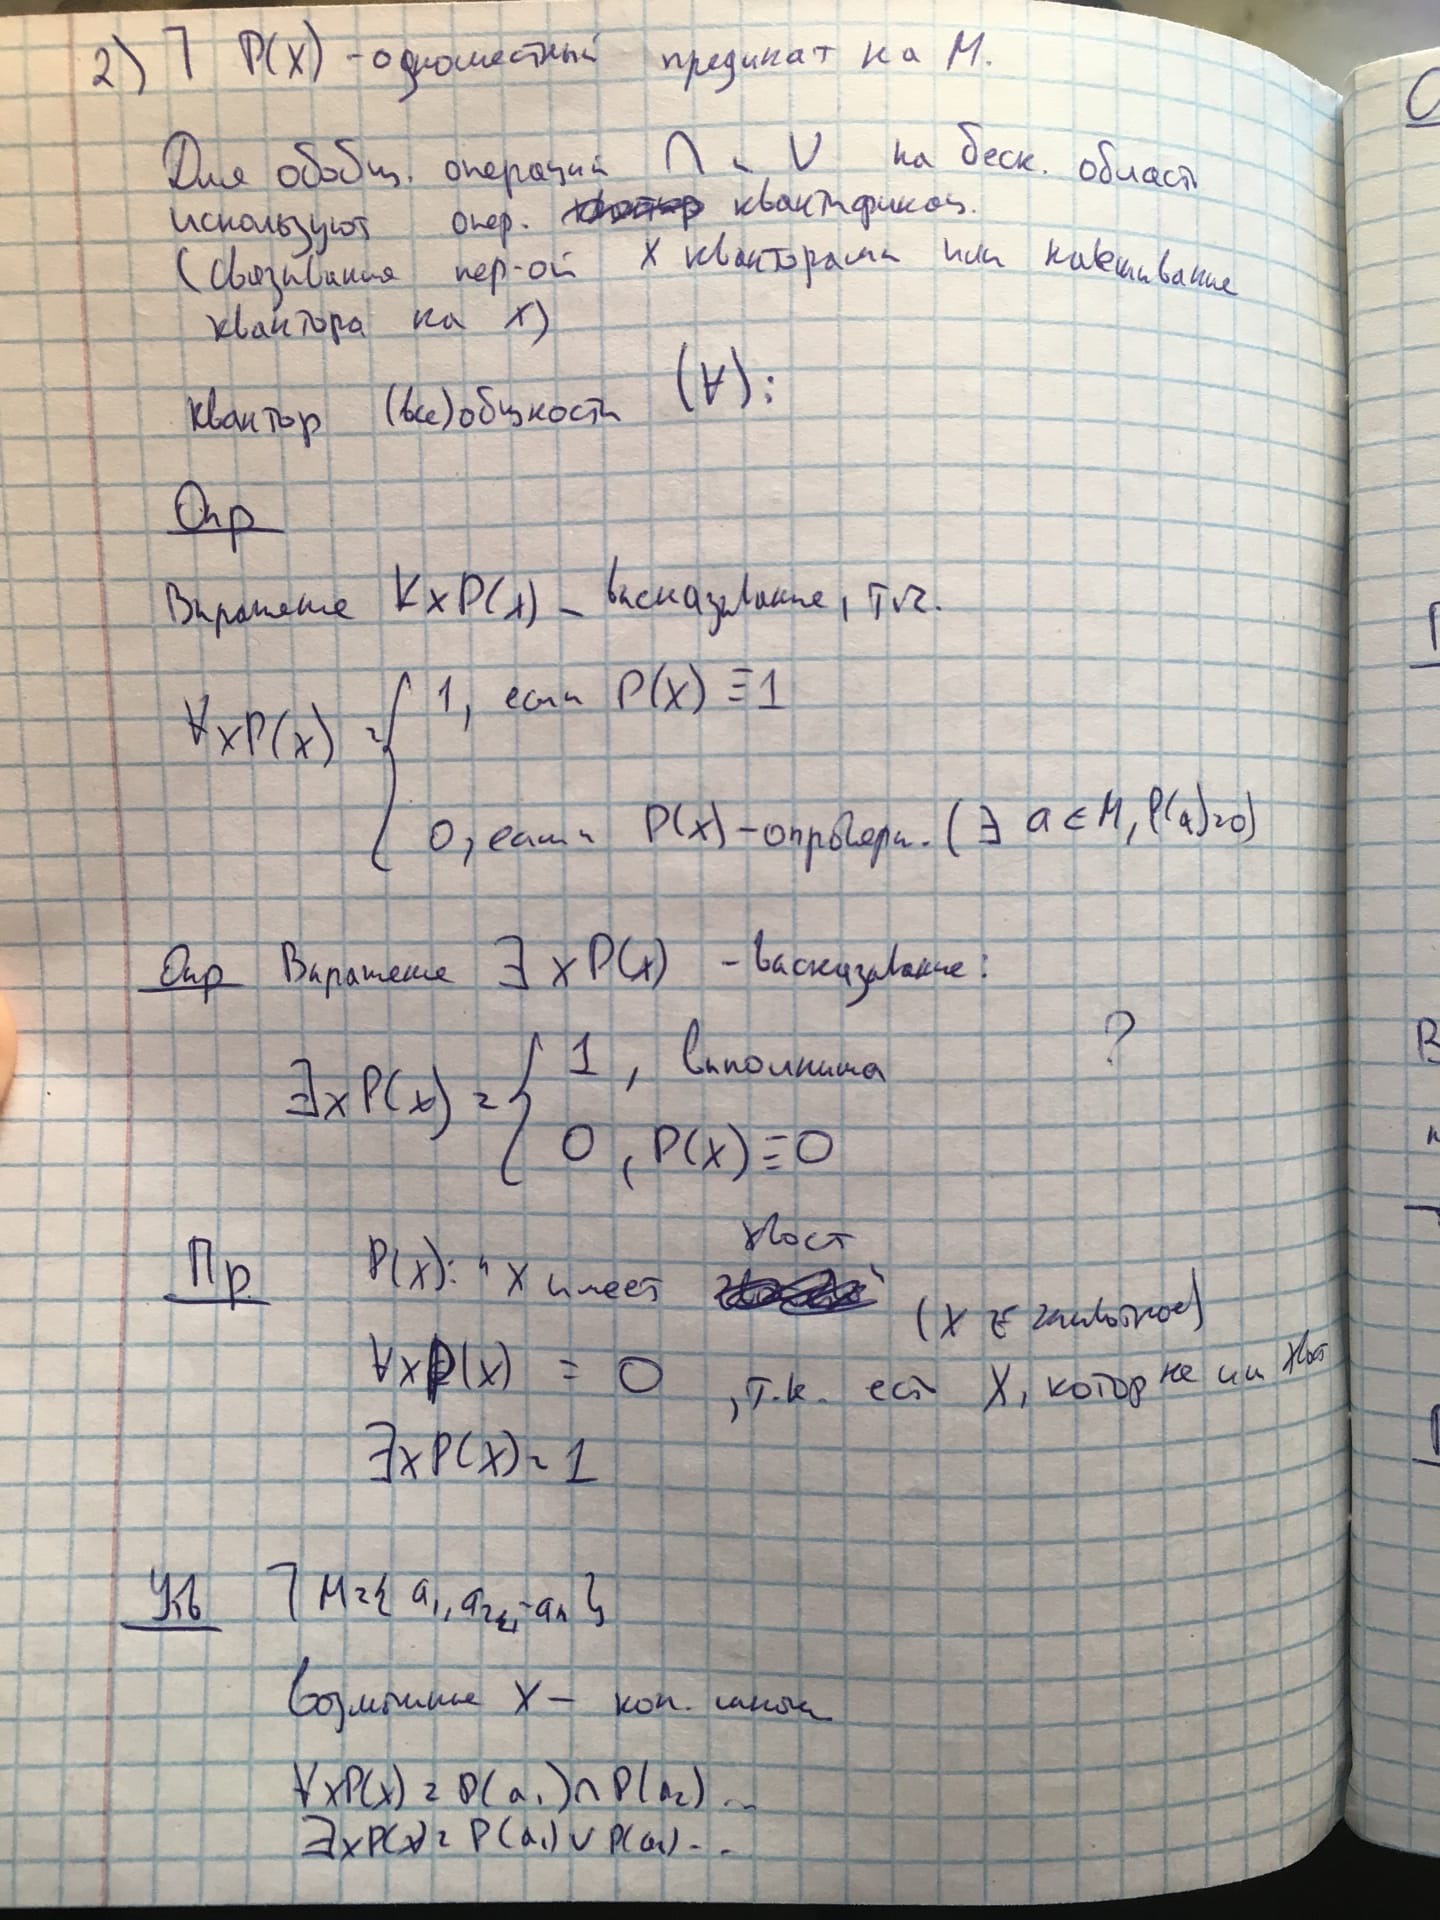 2) ⅂ P(x) - одноместный предикат на M.
Для обобщ. операций ∩ и ∪ на беск. област
используют опер. квантификац.
(связывания пер-ой x кванторами или навешивание
квантора на x)
квантор (все)общности (∀):
Опр
Выражение ∀xP(x) - высказывание, т.ч.
∀xP(x) = { 1, если P(x) ≡ 1
0, если P(x) - опроверж. (∃ a ∈ M, P(a)=0)
Опр Выражение ∃xP(x) - высказывание:
?
∃xP(x) = { 1, выполнима
0, P(x) ≡ 0
Пр P(x): "x имеет хвост"
(x ∈ животное)
∀xP(x) = 0, т.к. ест x, котор не им хвост
∃xP(x) = 1
Утв ⅂ M = { a₁, a₂, - aₙ }
возможные x - кон.
∀xP(x) = P(a₁) ∩ P(a₂) ...
∃xP(x) = P(a₁) ∨ P(a₂) - ..